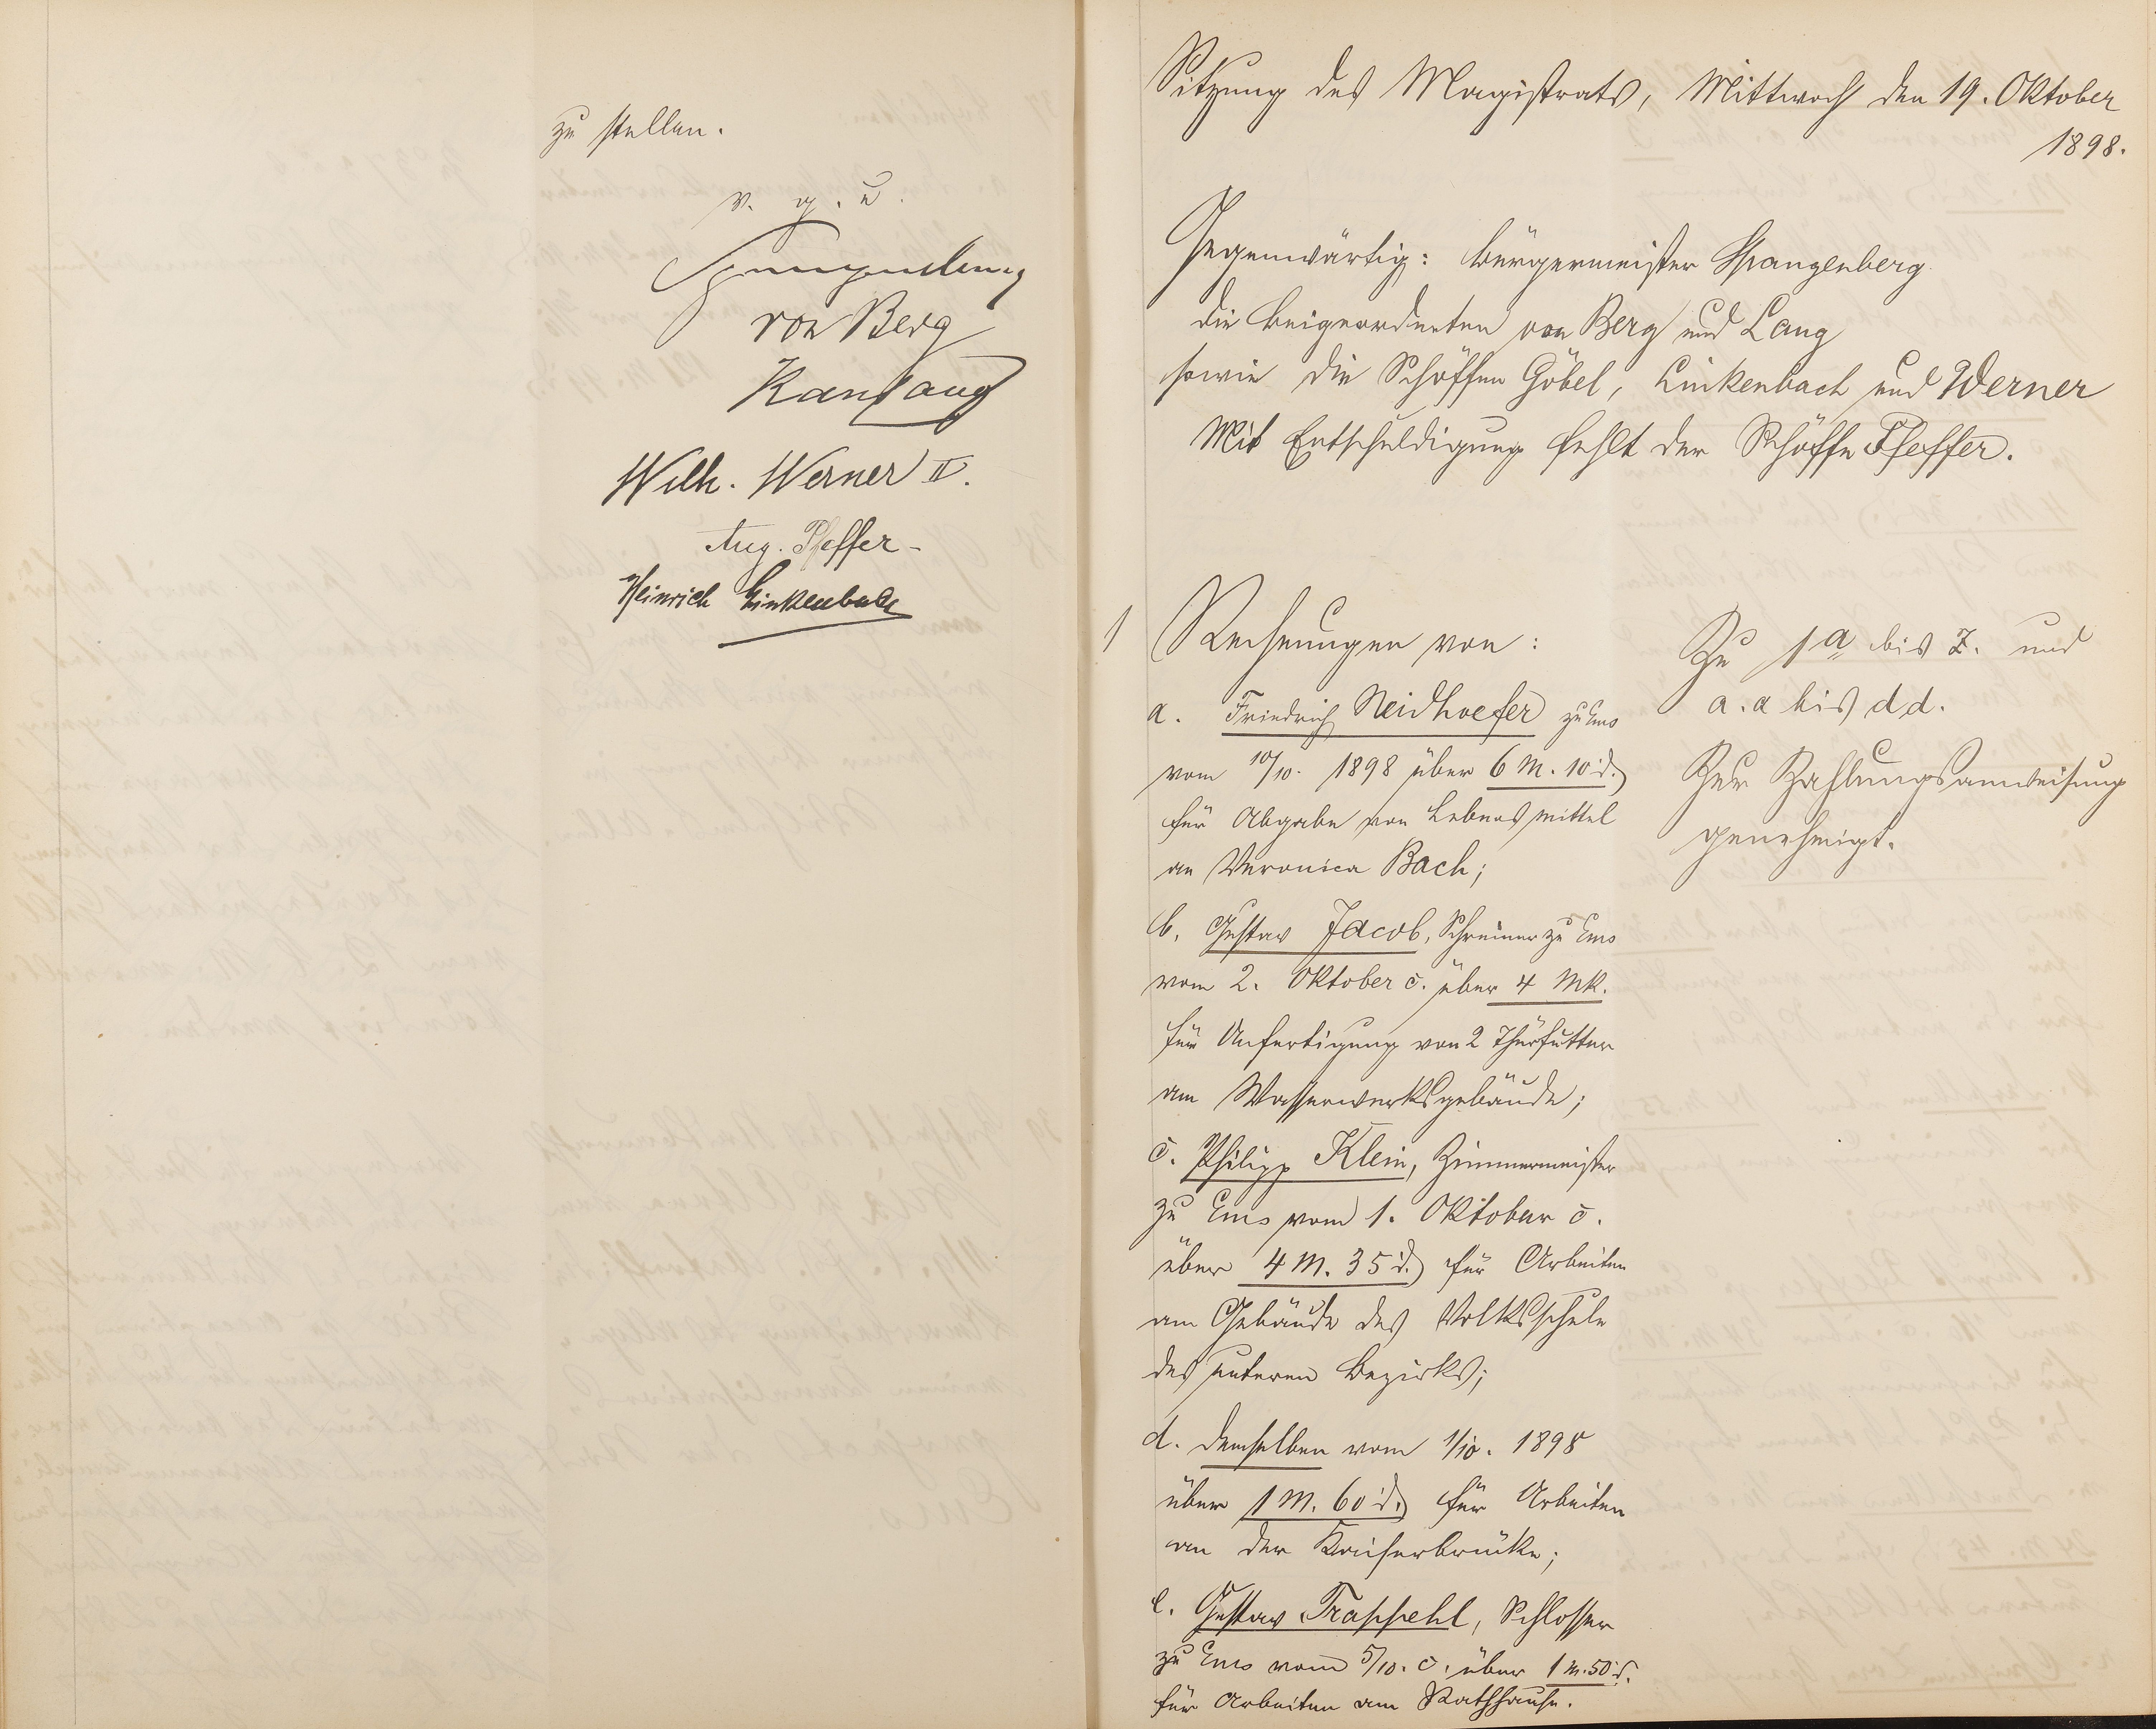 zu stellen.
v. g. u.
Spangenberg
von Berg
Karl Lang
Wilh. Werner II.
Aug. Pfeffer
Heinrich Linkenbach
Sitzung des Magistrats, Mittwoch den 19. Oktober
1898.
Gegenwärtig: Bürgermeister Spangenberg
die Beigeordneten von Berg und Lang
sowie die Schöffen Göbel, Linkenbach und Werner
Mit Entschuldigung fehlt der Schöffe Pfeffer.
1 Rechnungen von:
a. Friedrich Neidhoefer zu Ems
vom 10/10. 1898 über 6 M. 10 ₰
für Abgabe von Lebensmittel
an Veronica Bach;
b. Gustav Jacob, Schreiner zu Ems
vom 2. Oktober c. über 4 Mk.
für Anfertigung von 2 Thürfutter
am Wasserwerksgebäude;
c. Philipp Klein, Zimmermeister
zu Ems vom 1. Oktober c.
über 4 M. 35 ₰ für Arbeiten
am Gebäude des Volksschule
des unteren Bezirks;
d. demselben vom 1/10. 1898
über 1 M. 60 ₰ für Arbeiten
an der Kaiserbrücke;
e. Gustav Trappehl, Schlosser
zu Ems vom 5/10. c. über 1 M. 50 ₰.
für Arbeiten am Rathhause.
Zu 1 a bis z. und
a.a bis dd.
Zur Zahlungsanweisung
genehmigt.